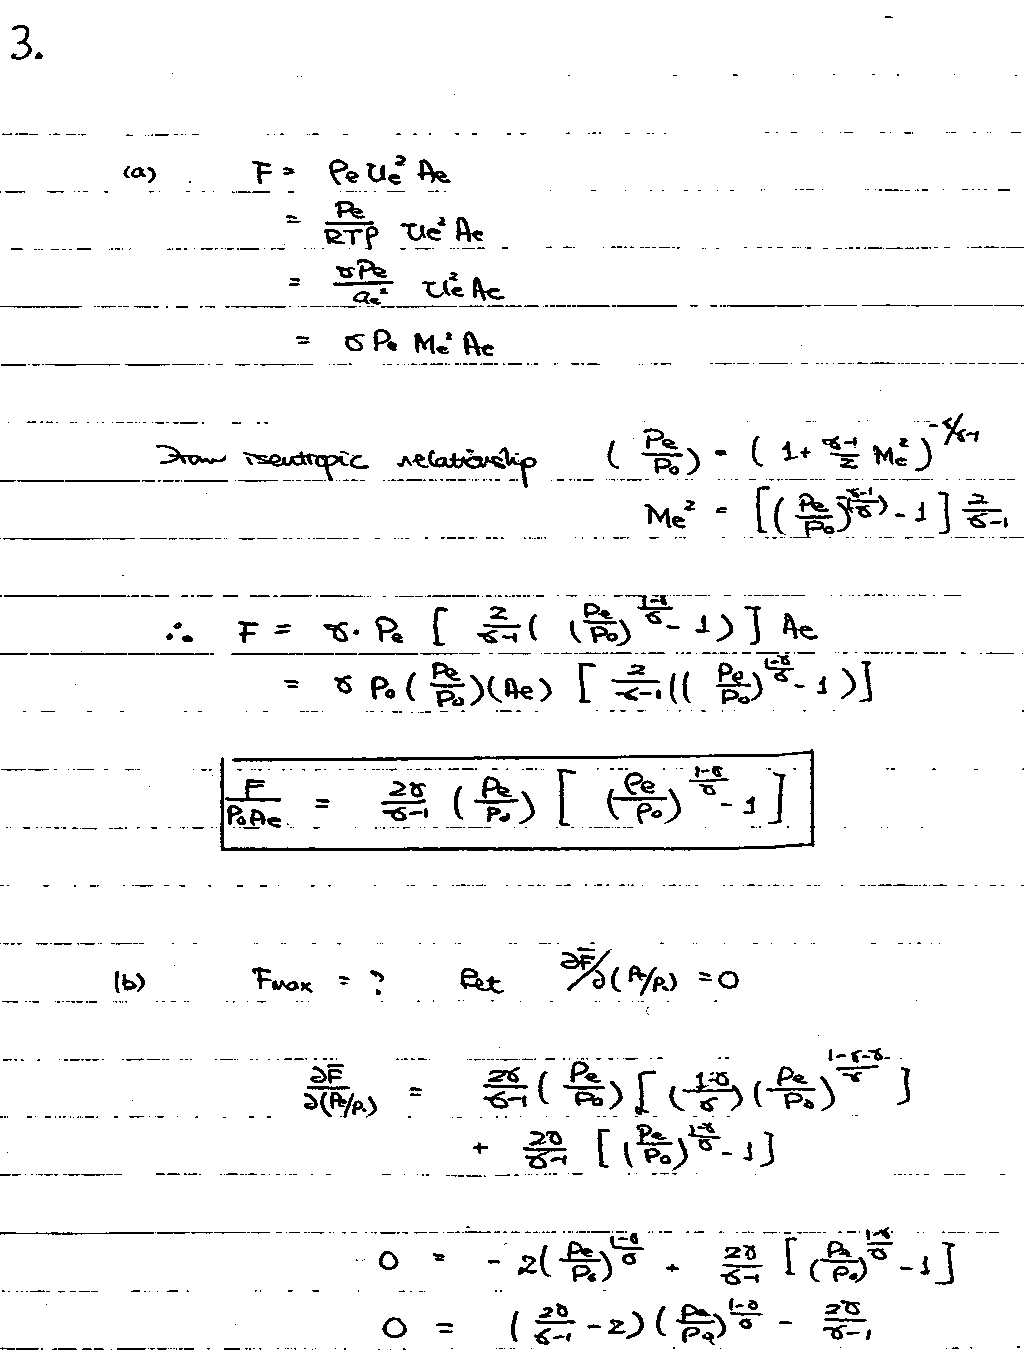 3.
(a) F = ρe ue² Ae
= Pe/RTρ ue² Ae
= γPe/ae² ue² Ae
= γ Pe Me² Ae
From isentropic relationship (Pe/Po) = (1 + γ-1/2 Me²)^-γ/γ-1
Me² = [(Pe/Po)^-(γ-1/γ) - 1] 2/γ-1
∴ F = γ · Pe [ 2/γ-1 ( (Pe/Po)^1-γ/γ - 1 ) ] Ae
= γ Po (Pe/Po)(Ae) [ 2/γ-1 (( Pe/Po)^1-γ/γ - 1 )]
F/PoAe = 2γ/γ-1 (Pe/Po) [ (Pe/Po)^1-γ/γ - 1 ]
(b) Fmax = ? let ∂F̄/∂(Pe/Po) = 0
∂F̄/∂(Pe/Po) = 2γ/γ-1 (Pe/Po) [ (1-γ/γ) (Pe/Po)^1-γ-γ/γ ]
+ 2γ/γ-1 [ (Pe/Po)^1-γ/γ - 1 ]
0 = - 2(Pe/Po)^1-γ/γ + 2γ/γ-1 [ (Pe/Po)^1-γ/γ - 1 ]
0 = (2γ/γ-1 - 2) (Pe/Po)^1-γ/γ - 2γ/γ-1